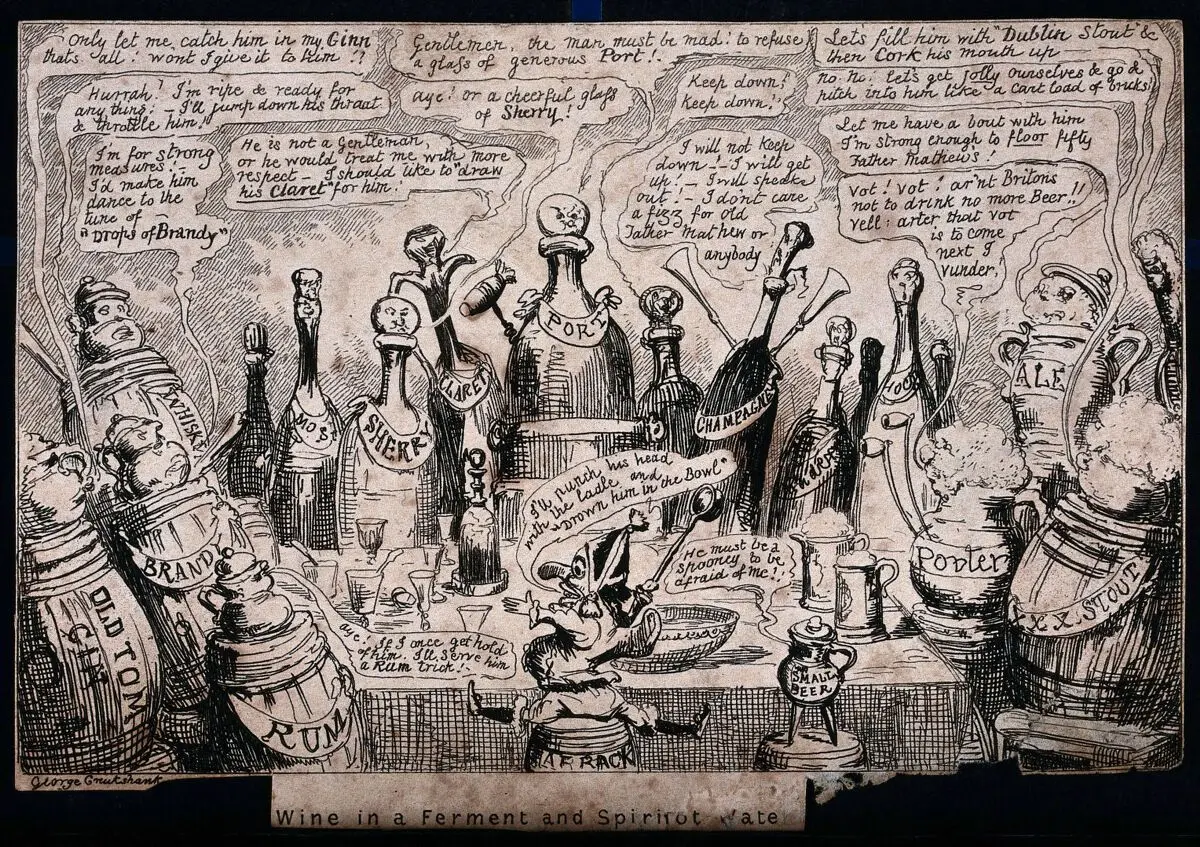 Only let me catch him in my Ginn
thats all! wont I give it to him!?
Gentlemen, the man must be mad! to refuse
a glass of generous Port!.
Let's fill him with "Dublin Stout" &
then Cork his mouth up
no. no! let's get Jolly ourselves & go &
pitch into him like a cart load of bricks!
Hurrah! I'm ripe & ready for
any thing! – I'll jump down his throat
& throttle him!!
aye! or a cheerful glass
of Sherry!
Keep down!
Keep down!
Let me have a bout with him
I'm strong enough to floor fifty
Father Mathews!
I'm for strong
measures!–
I'd make him
dance to the
tune of –
"Drops of Brandy"
He is not a Gentleman,
or he would treat me with more
respect – I should like to "draw
his Claret" for him!
I will not keep
down – ! – I will get
up! – I will speak
out! – I don't care
a fizz for old
Father Mathew or
anybody
vot! vot! ar'nt Britons
not to drink no more Beer!!
vell: arter that vot
is to come
next I
vunder,
PORT
CLARET
SHERRY
CHAMPAGNE
ALE
WHISKY
BRANDY
OLD TOM
GIN
RUM
I'll punch his head
with the ladle and
"Drown him in the Bowl"
He must be a
spooney to be
afraid of me!
aye! If I once get hold
of him, I'll serve him
a Rum trick!.
Porter
XXX STOUT
SMALL
BEER
ARRACK
George Cruikshank
Wine in a Ferment and Spirirot ate